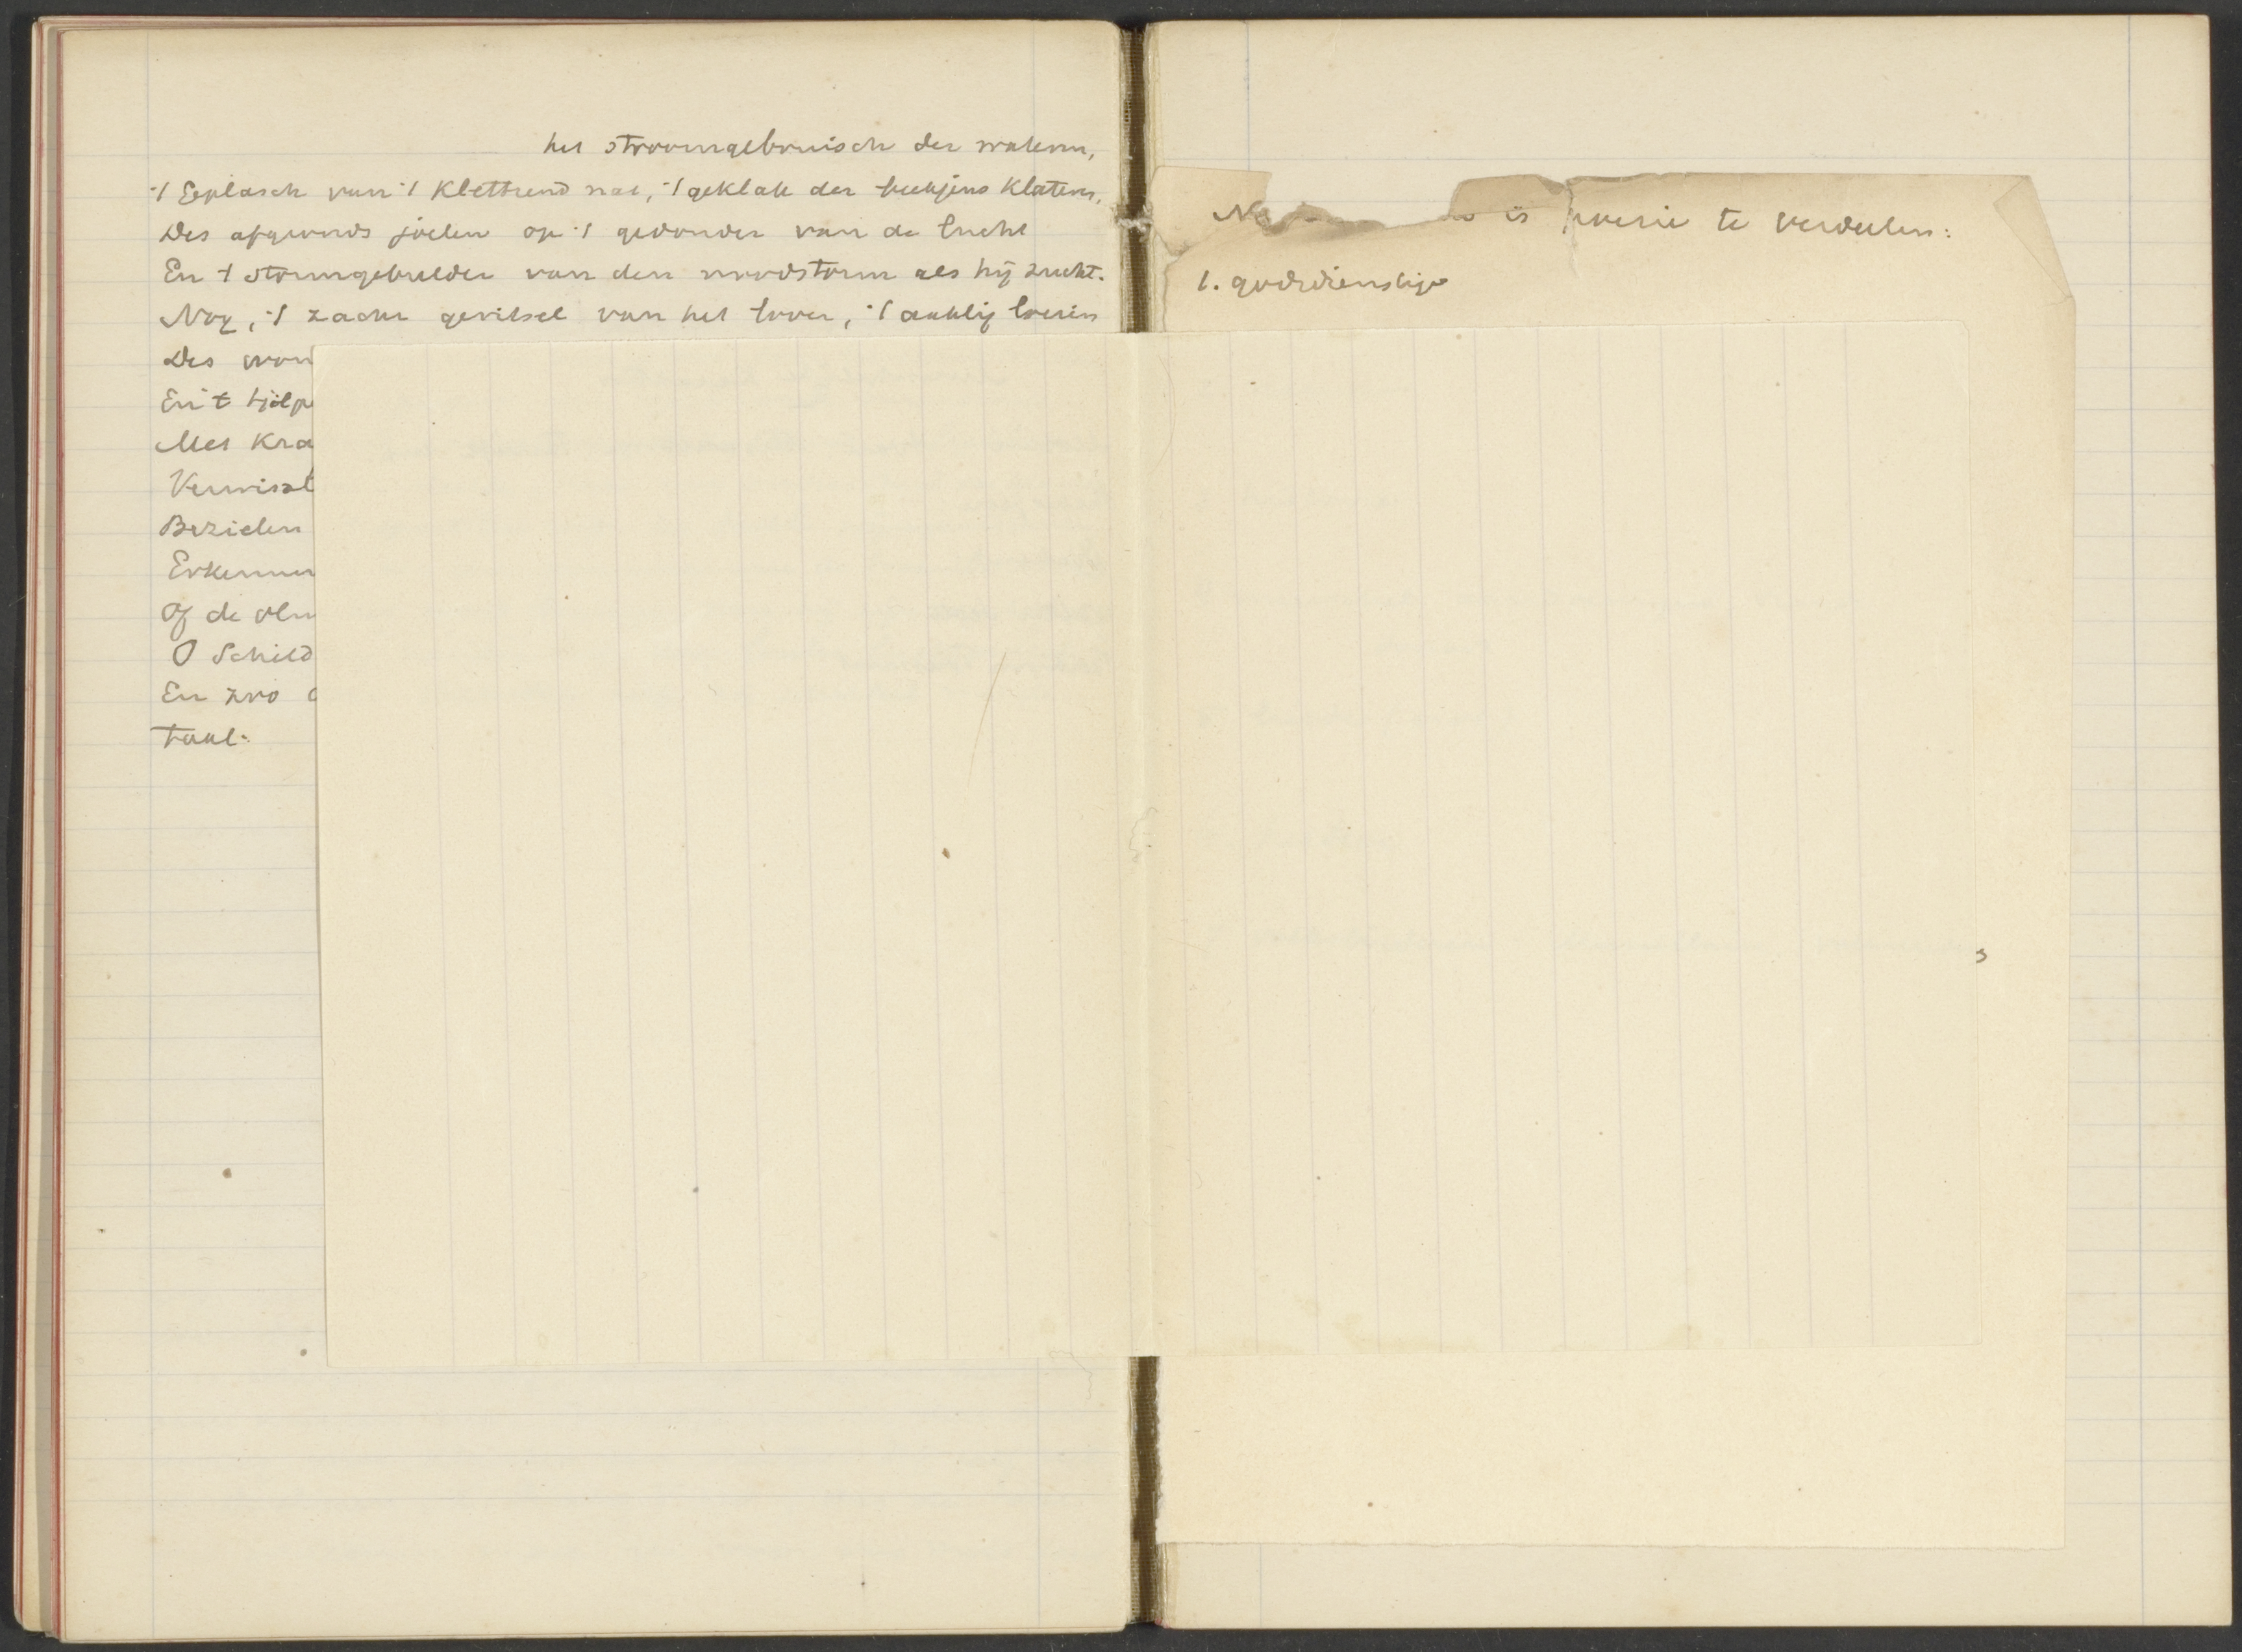 het stroomgebruisch der wateren,
't Geplasch van 't Klettrend nat, 't geklak der beekjens Klateren,
Des afgronds joelen op 't gedonder van de lucht
En 't stormgebulder van den noodstorm als hij zucht.
Nog, 't zacht geritsel van het loover, 't aaklig loeien
Des wou
En 't tjilp
Met Kra
Verwissl
Bezielen
Erkennen
Of de olm
O Schild
En zoo
taal:
is poezie te verdeelen:
1. godsdienstige
s